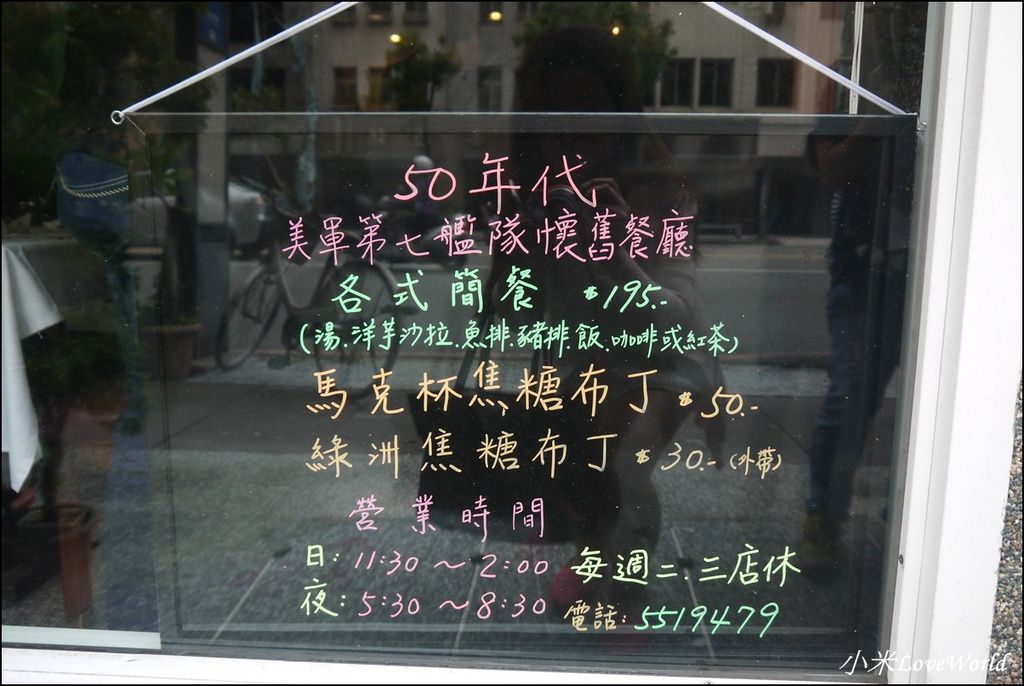 50年代
美軍第七艦隊懷舊餐廳
各式簡餐 $195.-
(湯.洋芋沙拉.魚排.豬排.飯.咖啡或紅茶)
馬克杯焦糖布丁 $50.-
綠洲焦糖布丁 $30.-(外帶)
營業時間
日: 11:30 ~ 2:00 每週二.三店休
夜: 5:30 ~ 8:30 電話: 5519479
小米LoveWorld